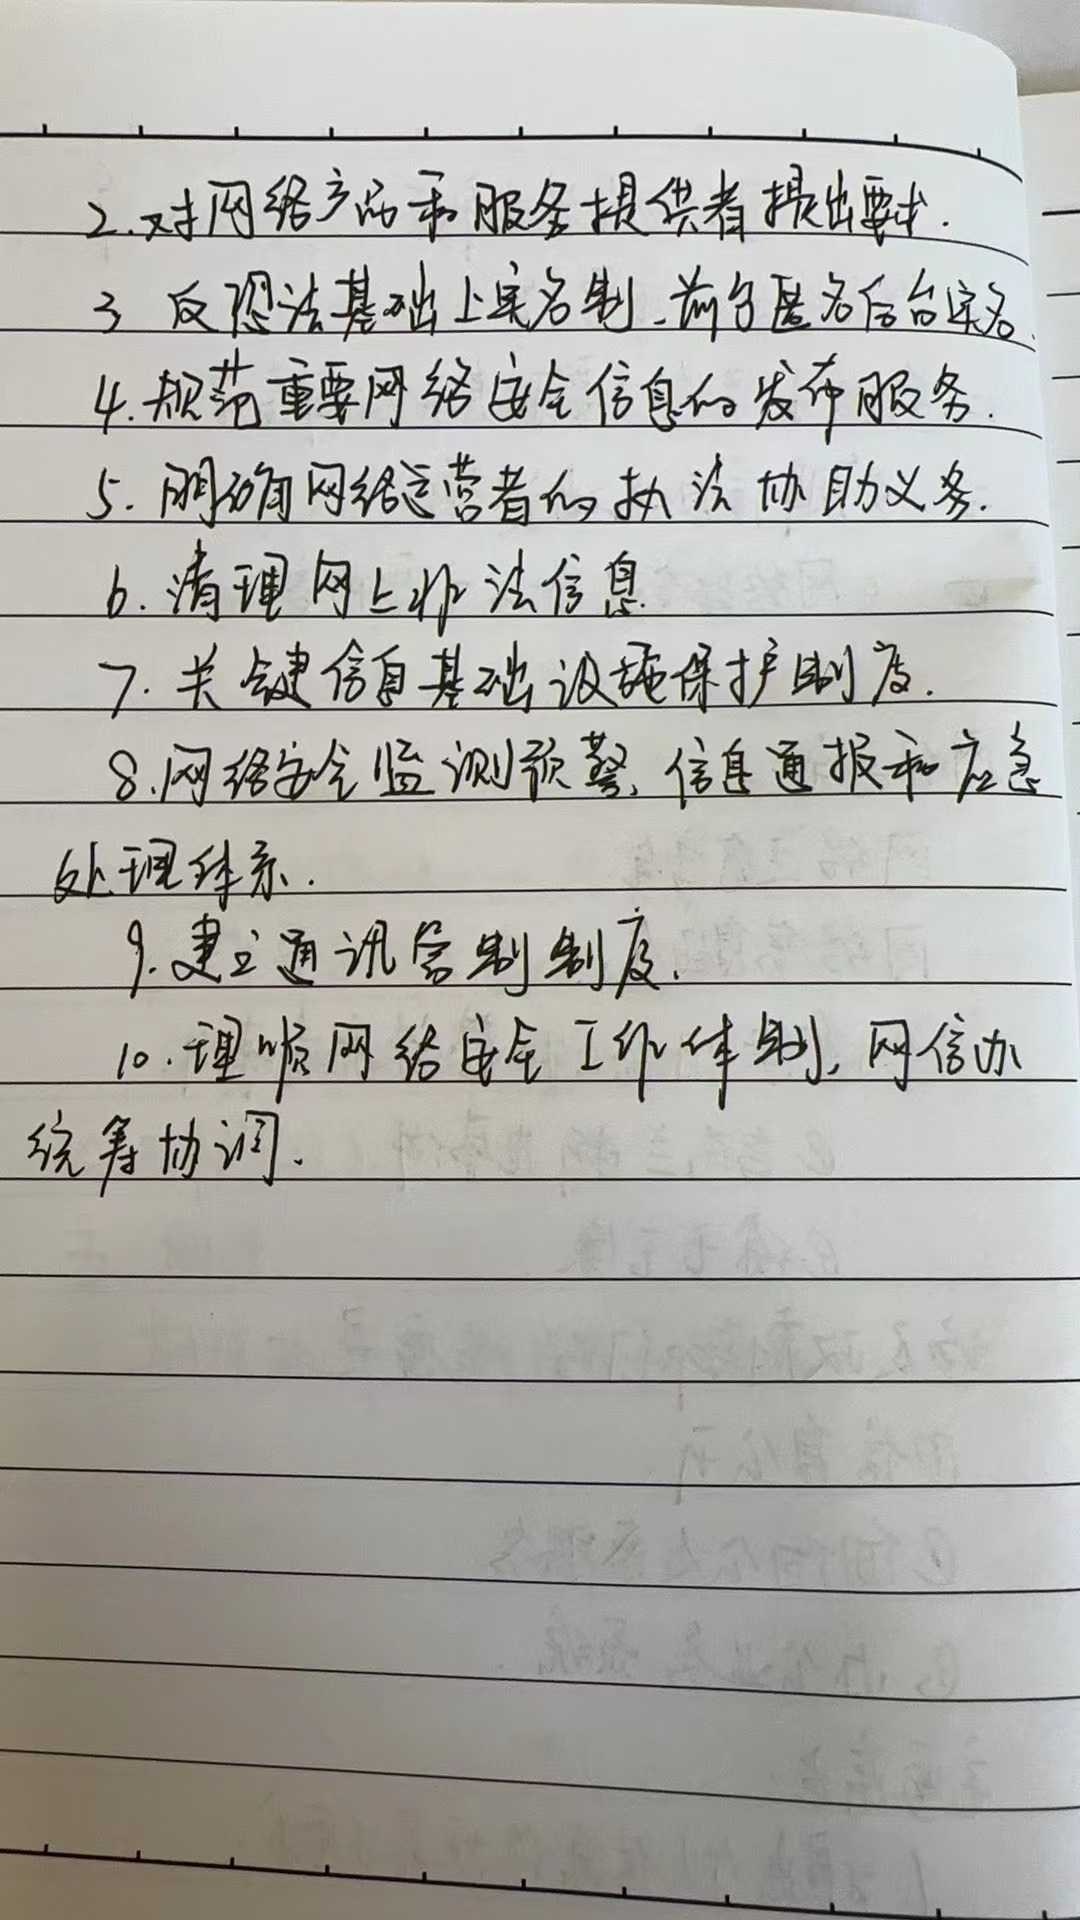 2.对网络产品和服务提供者提出要求.
3 反恐法基础上实名制、前台匿名后台实名.
4.规范重要网络安全信息的发布服务.
5.明确网络运营者的执法协助义务.
6.清理网上非法信息
7.关键信息基础设施保护制度.
8.网络安全监测预警、信息通报和应急
处理体系.
9.建立通讯管制制度.
10.理顺网络安全工作体制,网信办
统筹协调.